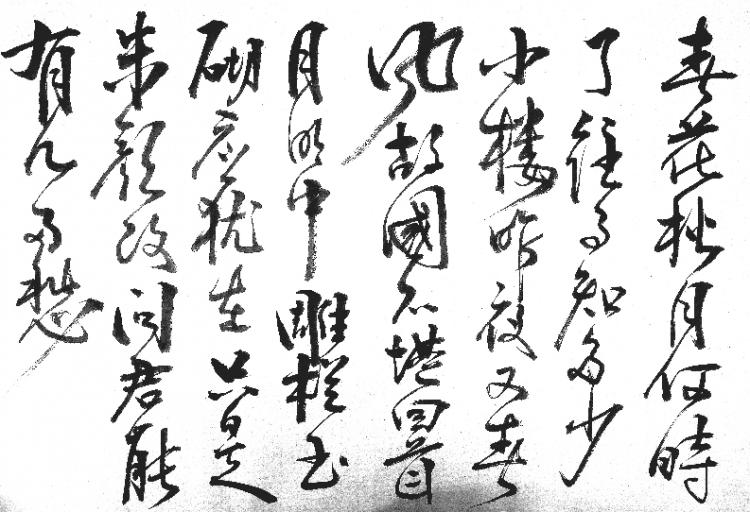 春花秋月何時
了往事知多少
小樓昨夜又春
風故國不堪回首
月明中雕欄玉
砌應猶在只是
朱顏改問君能
有几多愁